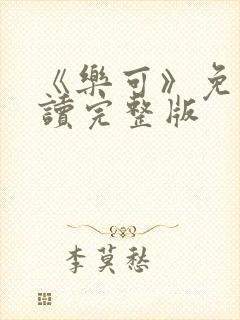 《樂可》免
讀完整版
李莫愁